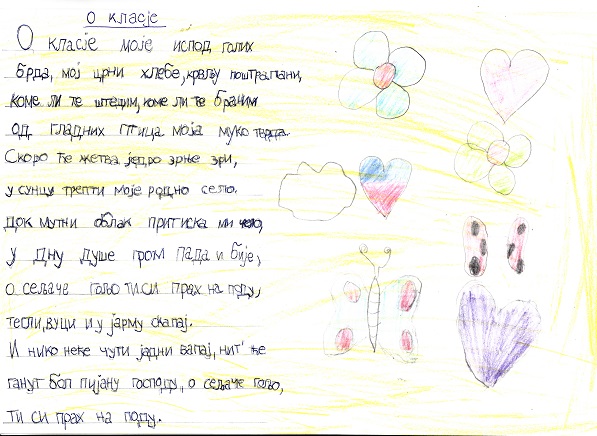 О класје
О класје моје испод голих
брда, мој црни хлебе, крвљу пошtрапани,
коме ли те штедим, коме ли те браним
од гладних птица моја муко тврда.
Скоро ће жетва једро зрње зри,
у сунцу трепти моје родно село.
док мутни облак притиска ми чело,
у дну душе гром пада и бије,
о сељаче гољо ти си прах на поду,
тегли, вуци и у јарму скапај.
И нико неће чути јадни вапај, нит' ће
ганут бол пијану господу, о сељаче гољо,
ти си прах на поду.